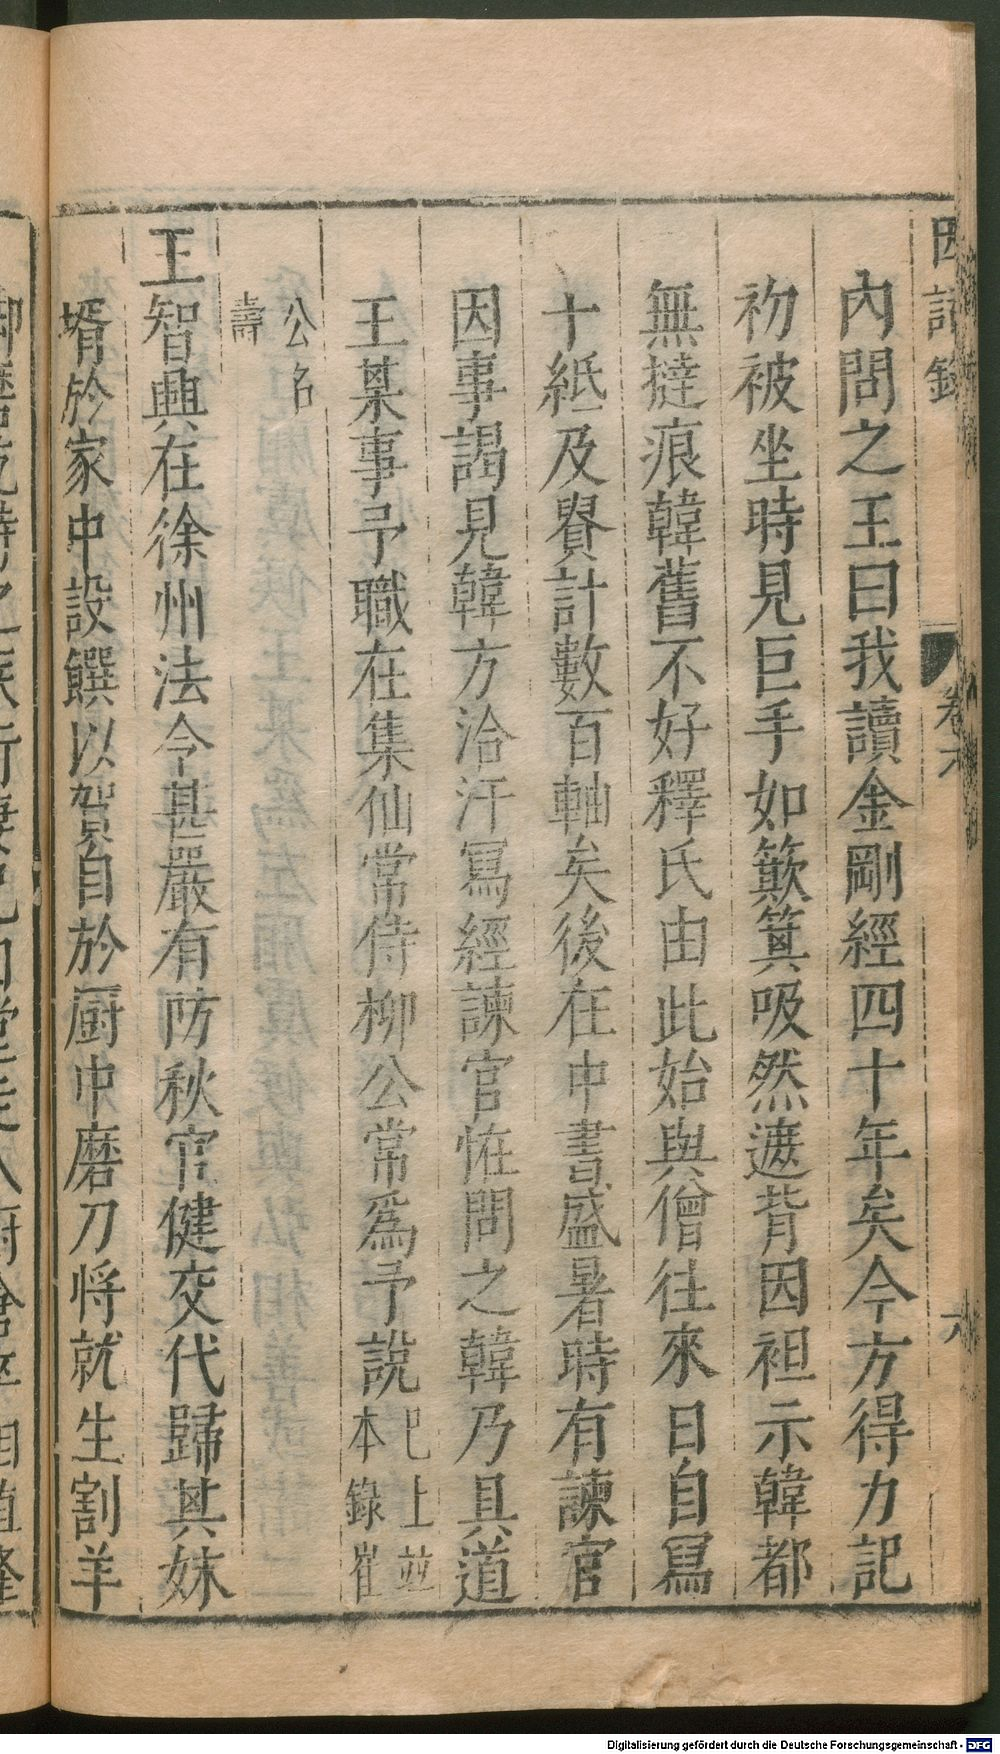 因話錄
卷六
六
內問之王曰我讀金剛經四十年矣今方得力記
初被坐時見巨手如簸箕吸然遮背因袒示韓都
無撻痕韓舊不好釋氏由此始與僧往來日自冩
十紙及貴計數百軸矣後在中書盛暑時有諫官
因事謁見韓方洽汗冩經諫官恠問之韓乃具道
王某事予職在集仙常侍柳公常爲予說
巳上並
本錄崔
公名
壽
王智興在徐州法令甚嚴有防秋官健交代歸其妹
壻於家中設饌以賀自於厨中磨刀將就生割羊
Digitalisierung gefördert durch die Deutsche Forschungsgemeinschaft - DFG